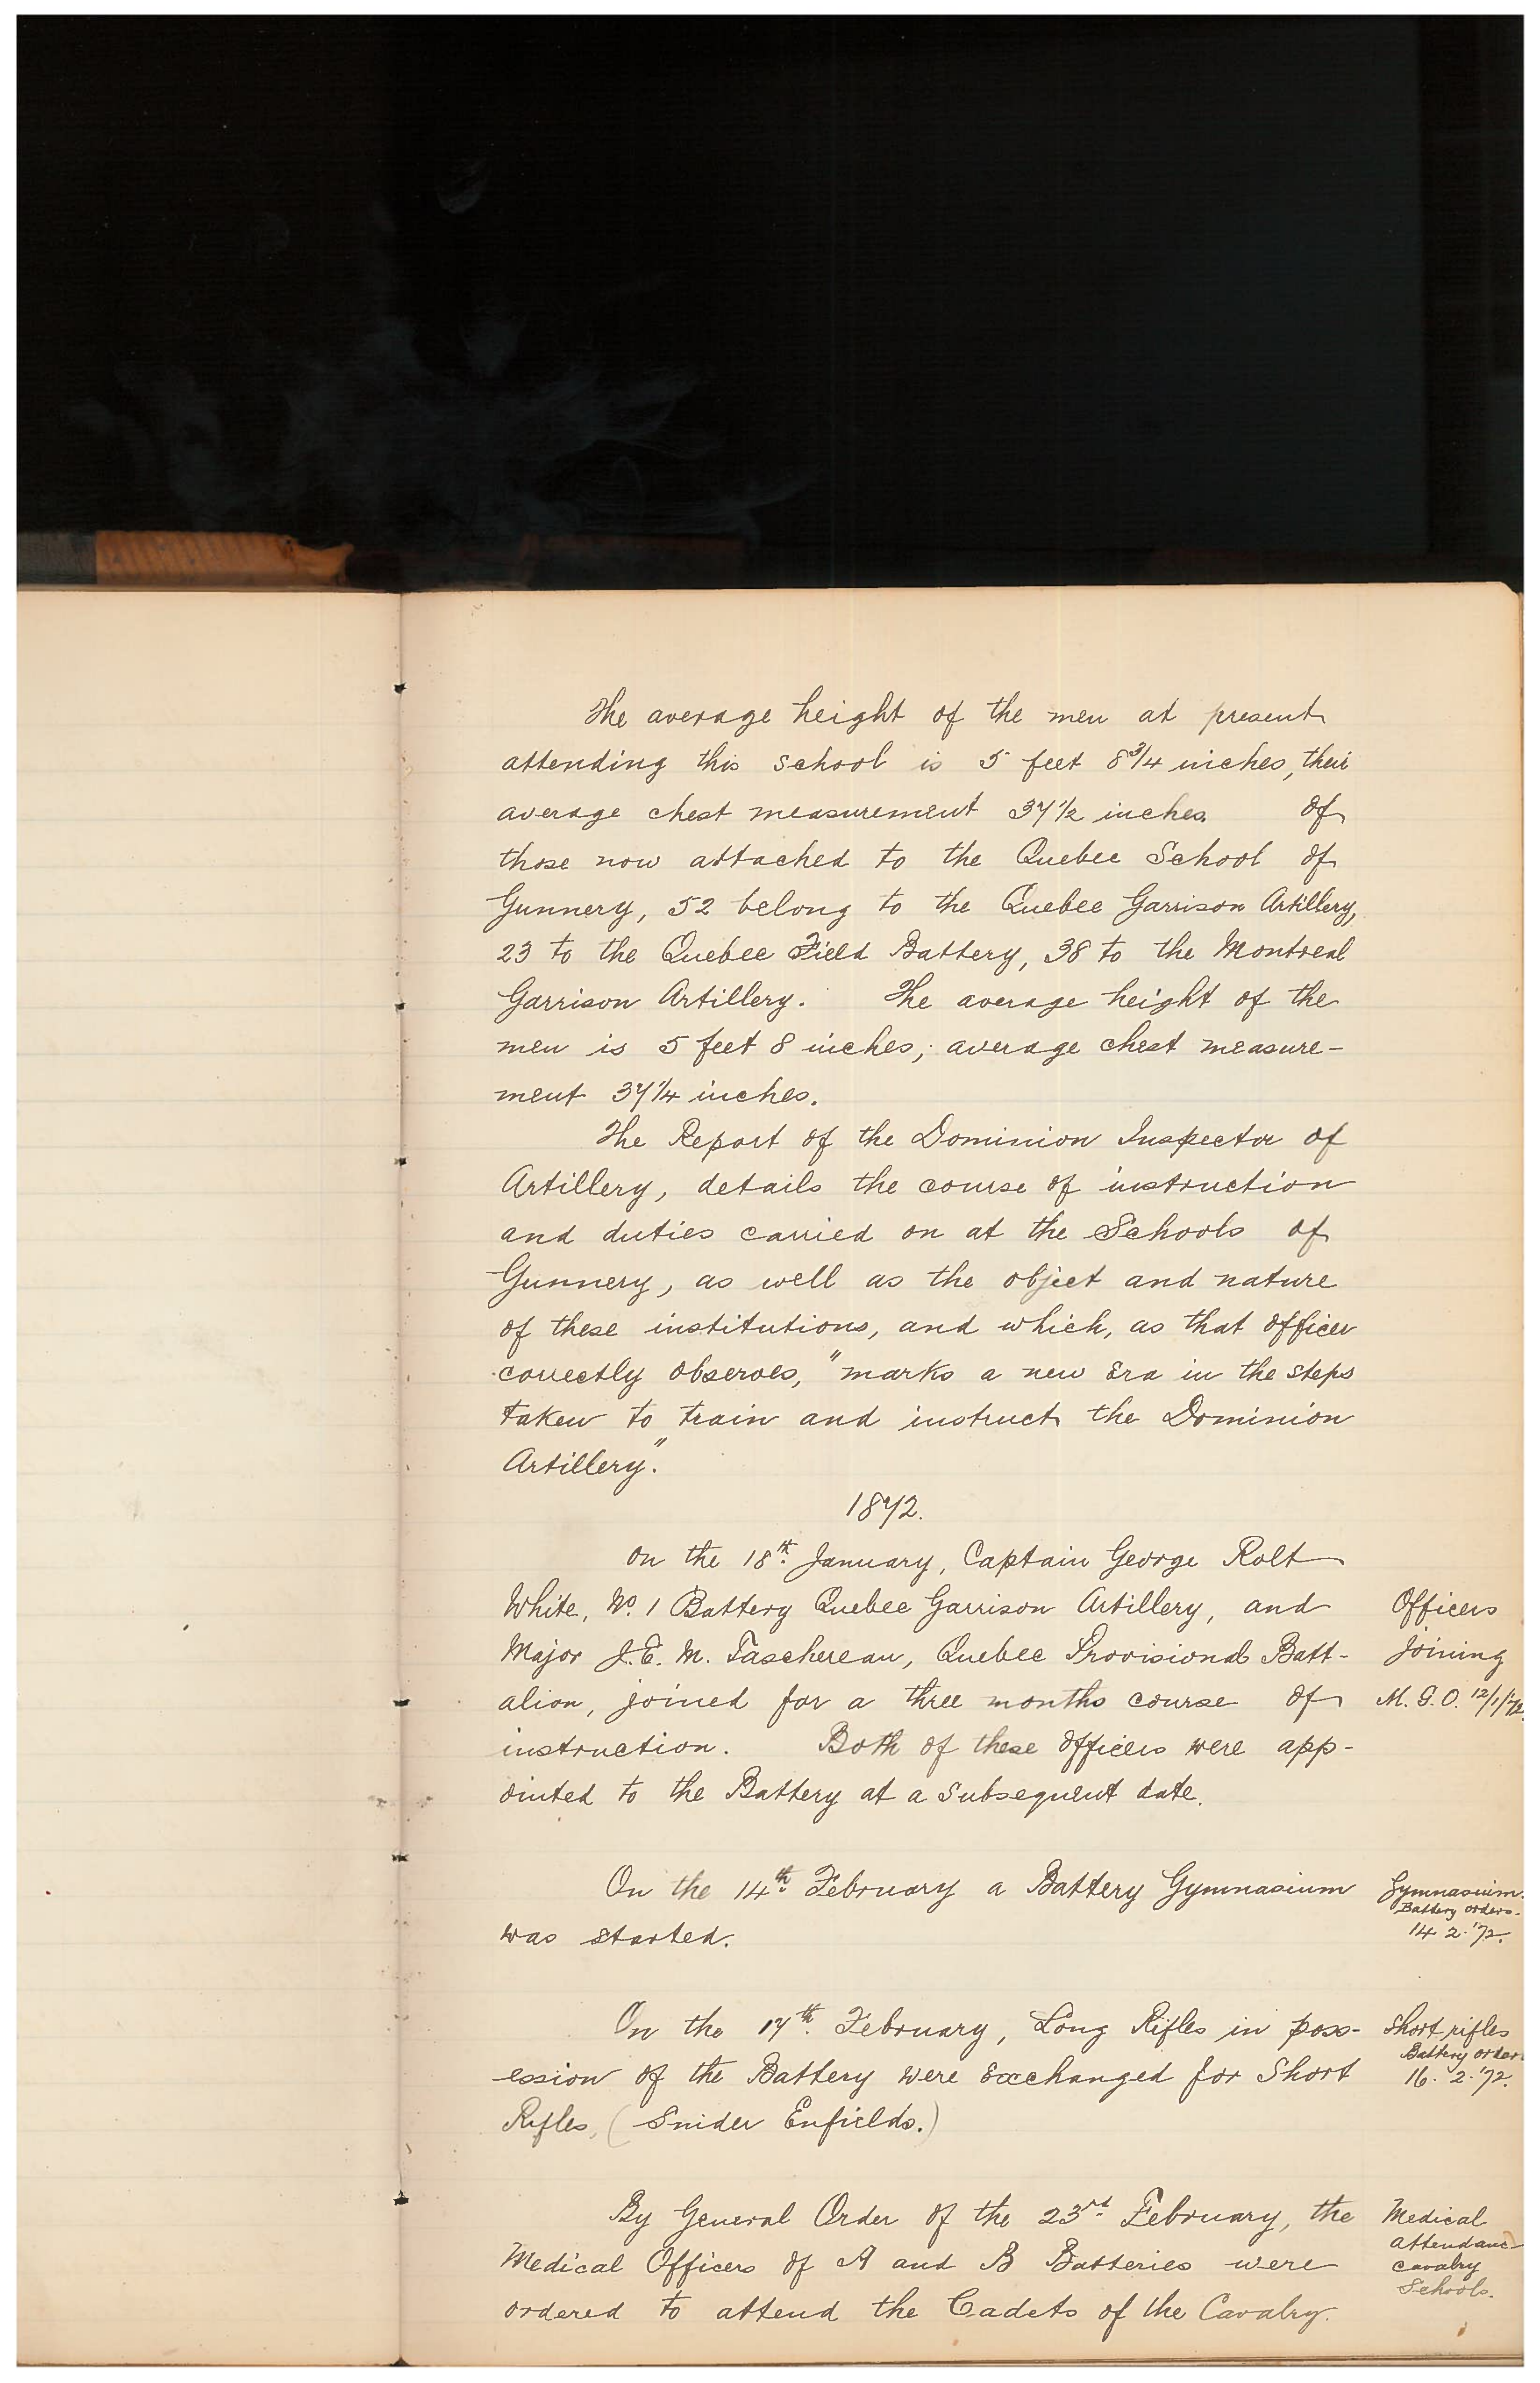 The average height of the men at present
attending this school is 5 feet 8 3/4 inches, their
average chest measurement 37 1/2 inches. Of
those now attached to the Quebec School of
Gunnery, 52 belong to the Quebec Garrison Artillery,
23 to the Quebec Field Battery, 38 to the Montreal
Garrison Artillery. The average height of the
men is 5 feet 8 inches; average chest measure-
ment 37 1/4 inches.
The Report of the Dominion Inspector of
Artillery, details the course of instruction
and duties carried on at the Schools of
Gunnery, as well as the object and nature
of these institutions, and which, as that officer
correctly observes, "marks a new Era in the steps
taken to train and instruct the Dominion
Artillery."
1872.
On the 18th January, Captain George Rolt
White, No. 1 Battery Quebec Garrison Artillery, and
Officers
Major J.E.M. Taschereau, Quebec Provisional Batt-
joining
alion, joined for a three months course of
M.G.O. 12/1/72.
instruction. Both of these officers were app-
ointed to the Battery at a subsequent date.
On the 14th February a Battery Gymnasium
Gymnasium.
Battery orders.
was started.
14.2.'72.
On the 17th February, Long Rifles in poss-
Short rifles
Battery order
ession of the Battery were exchanged for Short
16.2.'72.
Rifles, (Snider Enfields.)
By General Order of the 23rd February, the
Medical
attendanc
Medical Officers of A and B Batteries were
cavalry
Schools.
ordered to attend the Cadets of the Cavalry.